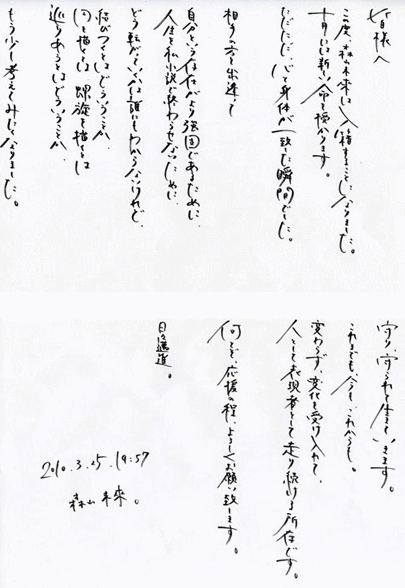 皆様へ
この度、森山未來は入籍することになりました。
十月には新しい命を授かります。
ただただ、心と身体が一致した瞬間でした。
相手の方と出逢って
自分という存在がより強固であるために、
人生を私小説で終わらせないために
どう転がっていくかは誰にもわからないけれど、
結びつくとはどういうことか、
円を描くとは 螺旋を描くとは
巡りあうとはどういうことか、
もう少し考えてみたくなりました。
守り、守られて生きていきます。
これまでも、今も、これからも。
変わらず、変化を受け入れて、
人として表現者として走り続ける所存です。
何とぞ、応援の程、よろしくお願い致します。
日々邁進。
2010.3.25.19:57
森山未來。